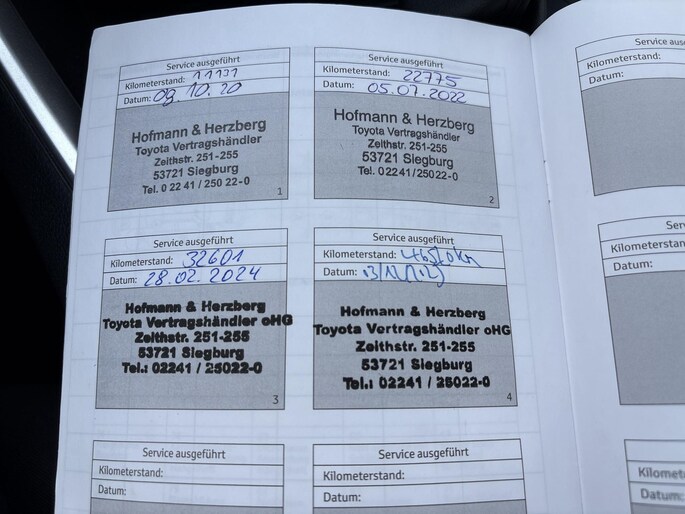 Service ausgeführt
Kilometerstand: 11131
Datum: 09.10.20
Hofmann & Herzberg
Toyota Vertragshändler
Zeithstr. 251-255
53721 Siegburg
Tel. 0 22 41 / 250 22-0
1
Service ausgeführt
Kilometerstand: 22775
Datum: 05.07.2022
Hofmann & Herzberg
Toyota Vertragshändler
Zeithstr. 251-255
53721 Siegburg
Tel. 0 22 41 / 250 22-0
2
Service ausgeführt
Kilometerstand: 32601
Datum: 28.02.2024
Hofmann & Herzberg
Toyota Vertragshändler oHG
Zeithstr. 251-255
53721 Siegburg
Tel.: 02241 / 25022-0
3
Service ausgeführt
Kilometerstand:
Datum:
Hofmann & Herzberg
Toyota Vertragshändler oHG
Zeithstr. 251-255
53721 Siegburg
Tel.: 02241 / 25022-0
4
Service ausgeführt
Kilometerstand:
Datum:
Service ausgeführt
Kilometerstand:
Datum:
Service aus
Kilometerstand:
Datum:
Serv
Kilometerstan
Datum:
Kilomet
Datum: